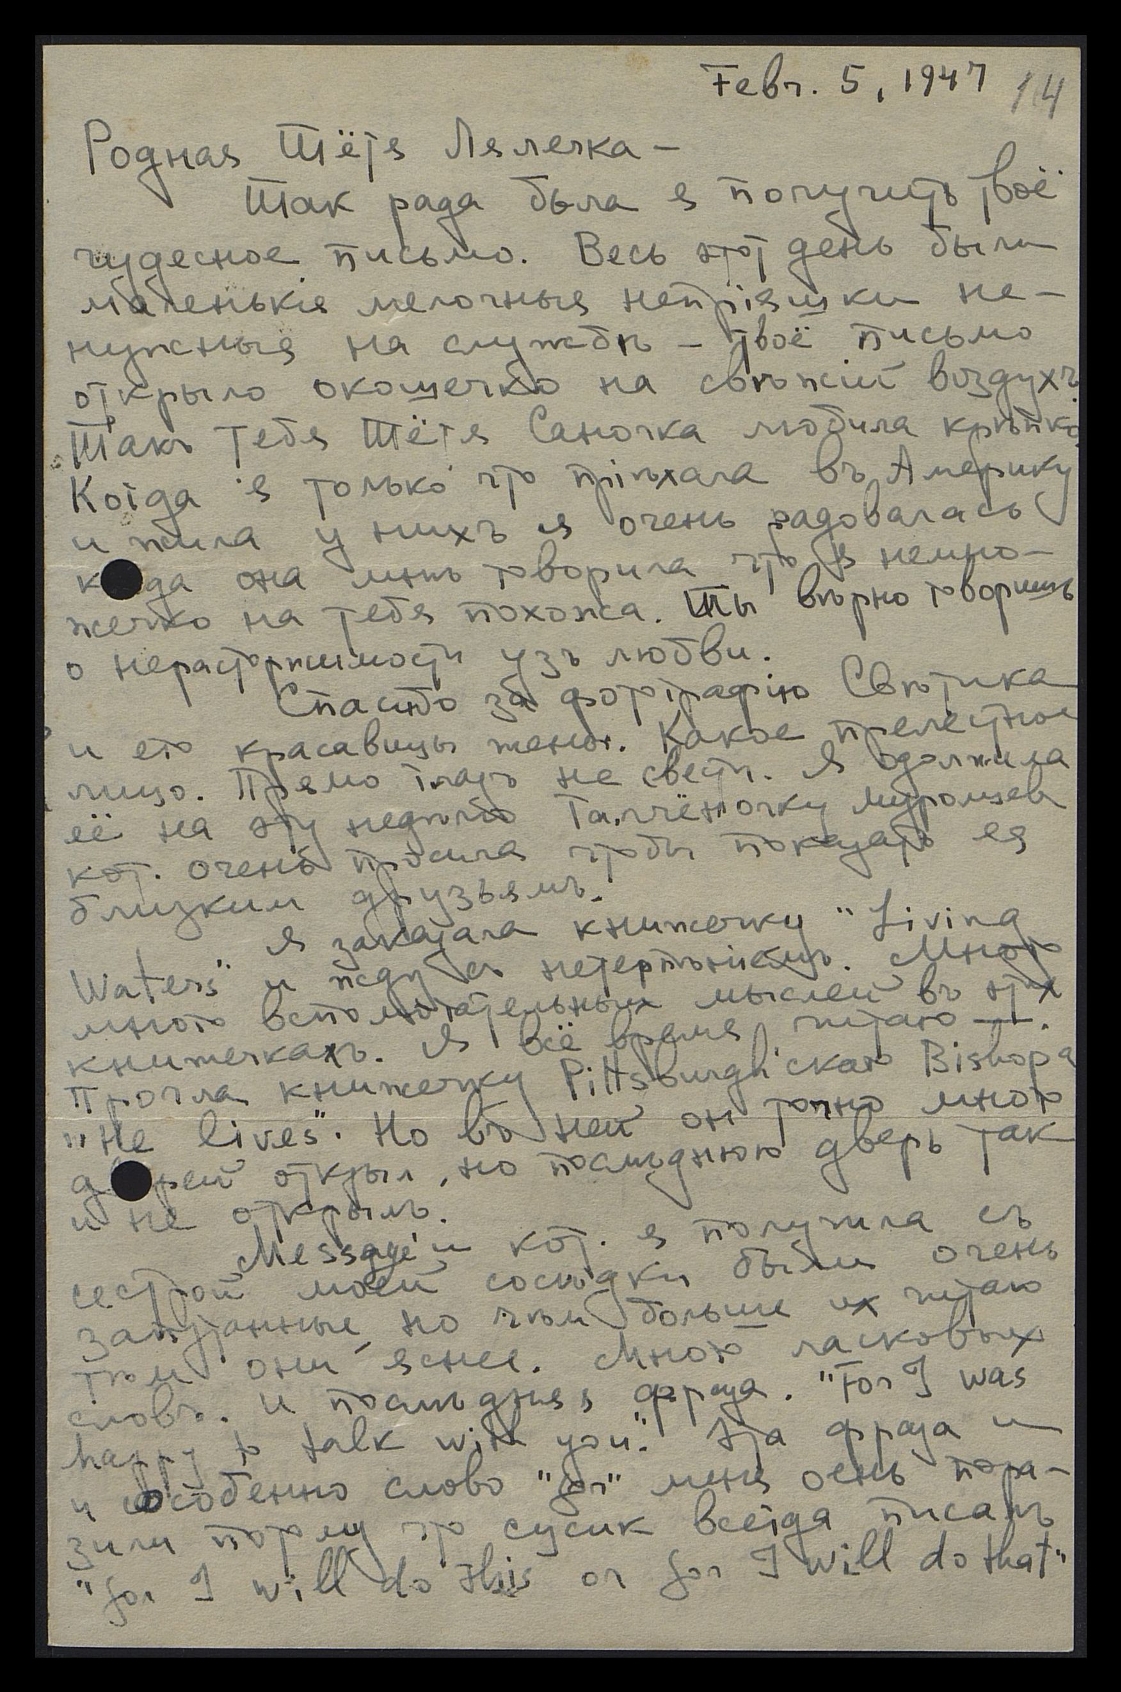 Febr. 5, 1947 14
Родная Тётя Лялечка –
Так рада была я получить твоё
чудесное письмо. Весь этот день были
маленькія мелочныя непріятки не-
нужныя на службѣ – твоё письмо
открыло окошечко на свѣжій воздухъ.
Такъ тебя Тётя Саночка любила крѣпко.
Когда я только что пріѣхала въ Америку
и жила у нихъ я очень радовалась
когда она мнѣ говорила что я немно-
жечко на тебя похожа. Ты вѣрно говоришь
о нерасторжимости узъ любви.
Спасибо за фотографію Свѣтика
и его красавицы жены. Какое прелестное
лицо. Прямо глазъ не свести. Я одолжила
её на эту недѣлю Муромцев
кот. очень просила чтобы показать ея
близким друзьямъ.
Я заказала книжечку "Living
Waters" и жду съ нетерпѣніемъ. Много
много вспомогательных мыслей въ этих
книжечкахъ. Я всё время читаю —.
Прочла книжечку Pittsburgh'скаго Bishopа
"He lives". Но въ ней он точно много
дверей открыл, но послѣднюю дверь так
и не открылъ.
Message'и кот. я получила съ
сестрой моей сосѣдки были очень
запутанные, но чѣм больше их читаю
тѣм они яснее. Много ласковых
словъ. И послѣдняя фраза. "For I was
happy to talk with you". Эта фраза и
и особенно слово "for" меня очень пора-
зили потому что сусик всегда писалъ
"for I will do this or for I will do that"